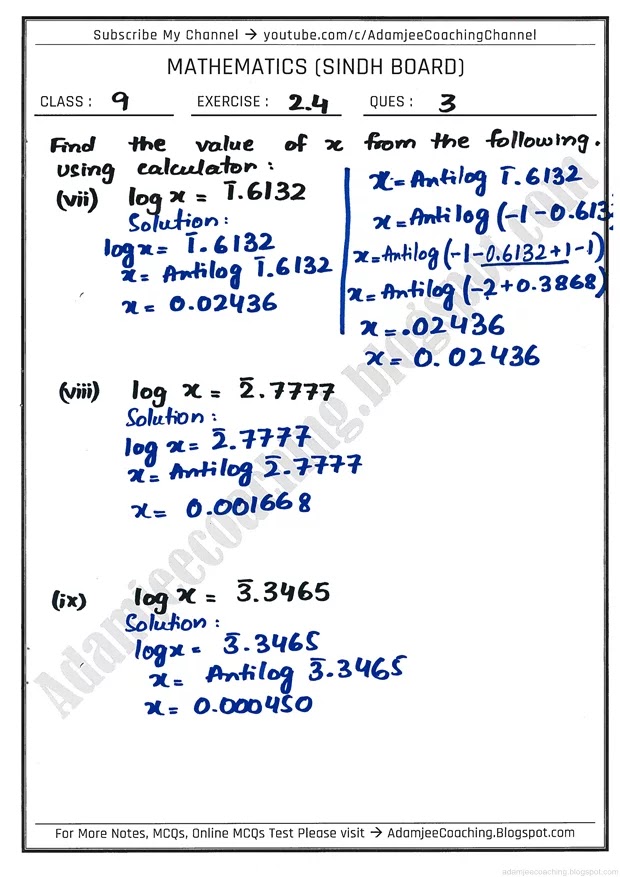 Subscribe My Channel → youtube.com/c/AdamjeeCoachingChannel
MATHEMATICS (SINDH BOARD)
CLASS : 9 EXERCISE : 2.4 QUES : 3
Find the value of x from the following.
using calculator :
(vii) log x = 1̅.6132
Solution :
log x = 1̅.6132
x = Antilog 1̅.6132
x = 0.02436
x = Antilog 1̅.6132
x = Antilog (-1 - 0.613
x = Antilog (-1 - 0.6132 + 1 - 1)
x = Antilog (-2 + 0.3868)
x = .02436
x = 0.02436
(viii) log x = 2̅.7777
Solution :
log x = 2̅.7777
x = Antilog 2̅.7777
x = 0.001668
(ix) log x = 3̅.3465
Solution :
log x = 3̅.3465
x = Antilog 3̅.3465
x = 0.000450
Adamjeecoaching.blogspot.com
For More Notes, MCQs, Online MCQs Test Please visit → AdamjeeCoaching.Blogspot.com
adamjeecoaching.blogspot.com